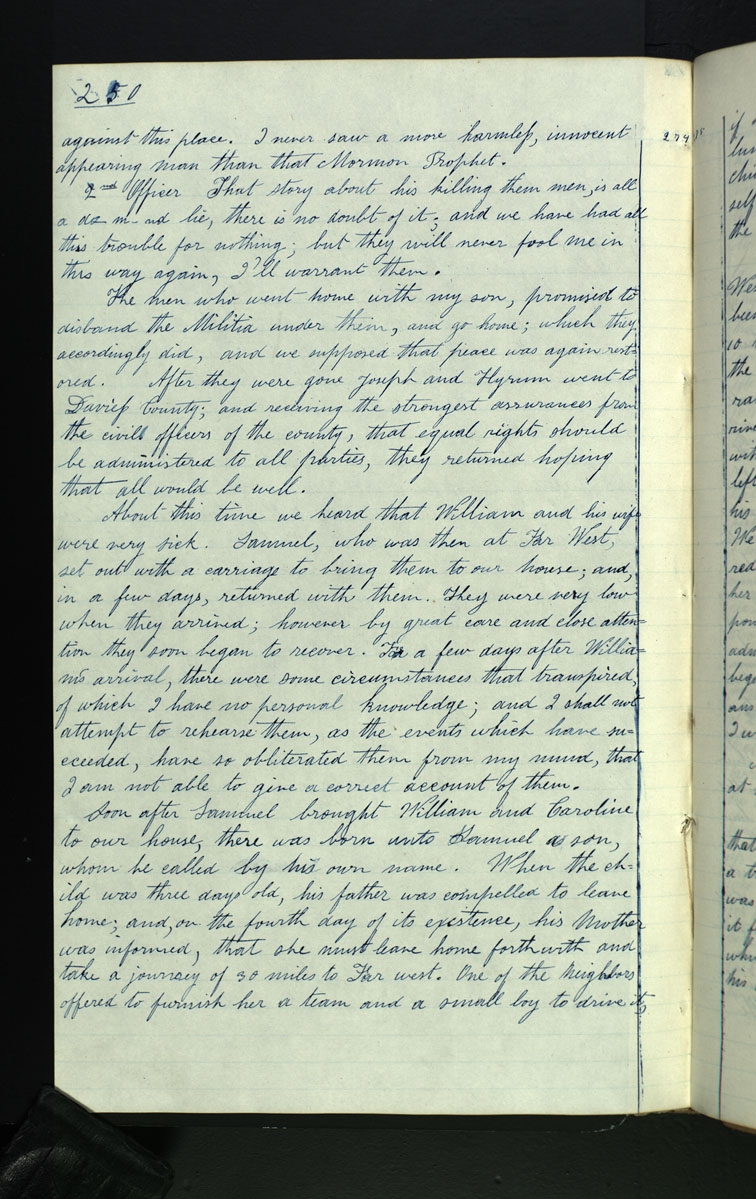 250
against this place. I never saw a more harmless, innocent
appearing man than that Mormon Prophet.
2nd Officer That story about his killing them men, is all
a da-m-nd lie, there is no doubt of it; and we have had all
this trouble for nothing; but they will never fool me in
this way again, I'll warrant them.
The men who went home with my son, promised to
disband the Militia under them, and go home; which they
accordingly did, and we supposed that peace was again rest-
ored. After they were gone Joseph and Hyrum went to
Daviess County; and receiving the strongest assurances from
the civil officers of the county, that equal rights should
be administered to all parties, they returned hoping
that all would be well.
About this time we heard that William and his wife
were very sick. Samuel, who was then at Far West,
set out with a carriage to bring them to our house; and,
in a few days, returned with them. They were very low
when they arrived; however by great care and close atten=
tion they soon began to recover. For a few days after Willia=
ms arrival, there were some circumstances that transpired,
of which I have no personal knowledge; and I shall not
attempt to rehearse them, as the events which have su=
cceeded, have so obliterated them from my mind, that
I am not able to give a correct account of them.
Soon after Samuel brought William and Caroline
to our house, there was born unto Samuel a son,
whom he called by his own name. When the ch=
ild was three days old, his father was compelled to leave
home; and, on the fourth day of its existence, his Mother
was informed, that she must leave home forthwith and
take a journey of 30 miles to Far west. One of the Neighbors
offered to furnish her a team and a small boy to drive it,